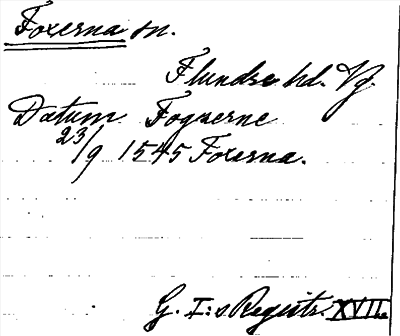 Foxerna sn.
Flundre hd. Vg.
Datum Foguerne
23/9 1545 Foxerna.
G. I:s Registr. XVII